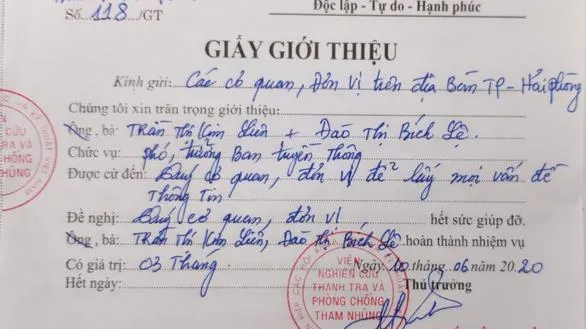 Độc lập - Tự do - Hạnh phúc
Số 118 /GT
GIẤY GIỚI THIỆU
Kính gửi: Các cơ quan, Đơn vị trên địa Bàn TP - Hải phòng
Chúng tôi xin trân trọng giới thiệu:
Ông, bà: Trần Thị Kim Liên + Đào Thị Bích Lệ.
Chức vụ: phó, trưởng Ban truyền Thông
Được cử đến: cơ quan, đơn vị để lấy mọi vấn đề
Thông Tin
Đề nghị: cơ quan, đơn vị hết sức giúp đỡ.
Ông, bà: Trần Thị Kim Liên, Đào Thị Bích Lệ hoàn thành nhiệm vụ
Có giá trị: 03 Tháng Ngày 10 tháng 06 năm 20.20
Hết ngày: Thủ trưởng
VIỆN
NGHIÊN CỨU
THANH TRA VÀ
PHÒNG CHỐNG
THAM NHŨNG